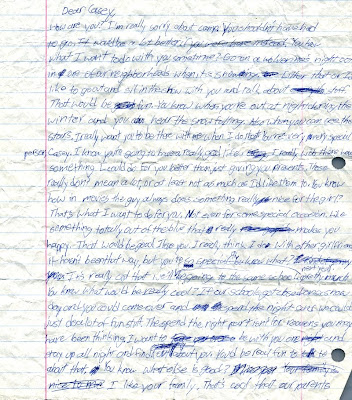 Dear Casey,
How are you? I'm really sorry about camp. You should not have had
to go. It would be a lot better if you were here instead. You know
what I want to do with you sometime? Go on a walk on a nice night
in our neighborhoods when it's snowing. Later that
like to go out and sit in the snow with you and talk about stuff.
That would be fun. You know when you're out at night during the
winter and you can hear the snow falling. And when you can see the
stars. I really want you to be there with me when I do that.
person, Casey. I know you're going to have a really good I really wish there was
something I could do for you better than just giving you presents. Those
really don't mean a lot, or at least not as much as I'd like them to. You know
how in movies the guy always does something really nice for the girl?
That's what I want to do for you. Not even for some special occasion. Like
something totally out of the blue that makes you
happy. That would be good. I like you really, I think. I with other girls and
it hasn't been that way, but you're so special. You know what?
It's really cool that we'll be going to the same school next month.
You know what would be really cool? If our school got
day and you could come over and spend the night cause we could
just do a lot of fun stuff. The spend the night part isn't for reasons you may
have been thinking. I want to be with you and
stay up all night and find out about you. It'd be real fun to
about that. You know what else is good?
I like your family. That's cool that our parents